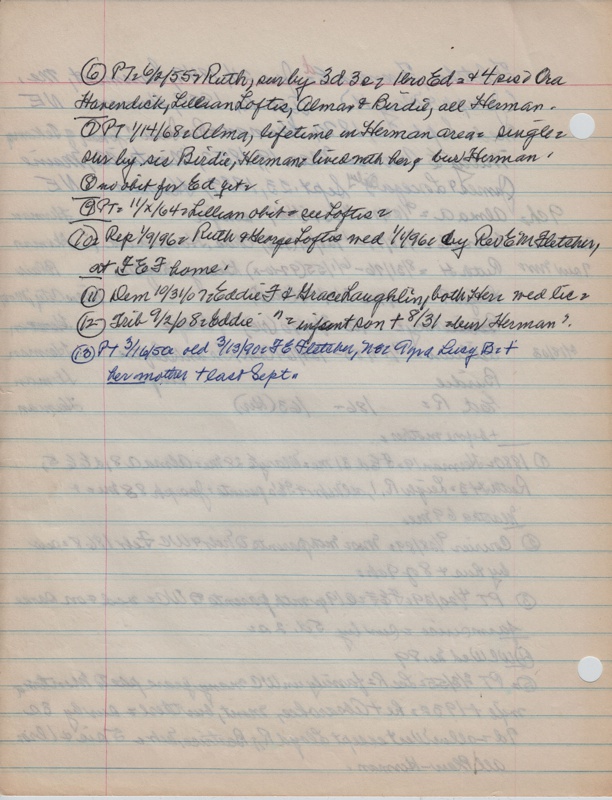 ⑥ PT = 6/2/55 = Ruth, sur by 3d 3s = 1bro Ed = & 4 sis = Ora
Havendick, Lillian Loftis, Alma & Birdie, all Herman.
⑦ PT 1/14/68 = Alma, lifetime in Herman area = single =
sur by sis Birdie, Herman = lived with her, bur Herman.
⑧ no obit for Ed yet =
⑨ PT = 11/x/64 = Lillian obit = see Loftis =
⑩ = Rep 1/9/96 = Ruth & George Loftis wed 1/1/96 by Rev E M Fletcher,
at F E F home.
⑪ Dem 10/31/07 = Eddie F & Grace Laughlin, both Her wed lic =
⑫ = Trib 9/2/08 = Eddie " = infant son + 8/31 = bur Herman.
⑬ PT 3/16/50 old 3/19/90 = F E Fletcher, Lucy B = +
her mother + last Sept.